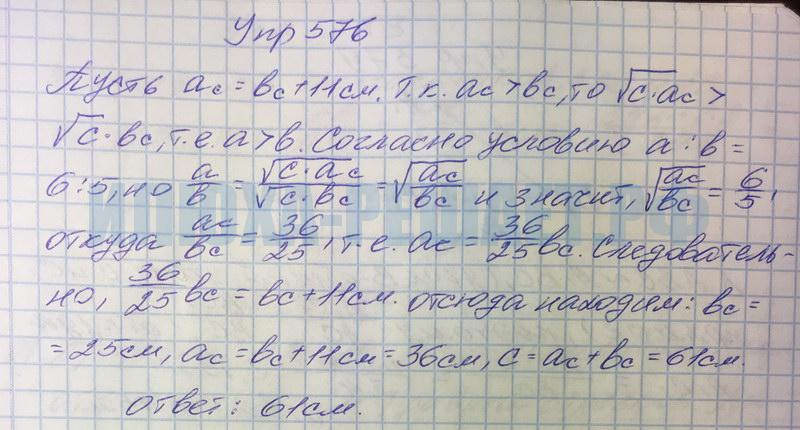 Упр 576
Пусть ac = bc + 11 см. Т.к. ac > bc, то √c·ac >
√c·bc, т.е. a > b. Согласно условию a : b =
6 : 5, но a/b = √c·ac/√c·bc = √ac/bc и значит, √ac/bc = 6/5,
откуда ac/bc = 36/25, т.е. ac = 36/25 bc. Следователь-
но, 36/25 bc = bc + 11 см. отсюда находим: bc =
= 25 см, ac = bc + 11 см = 36 см, c = ac + bc = 61 см.
ответ: 61 см.